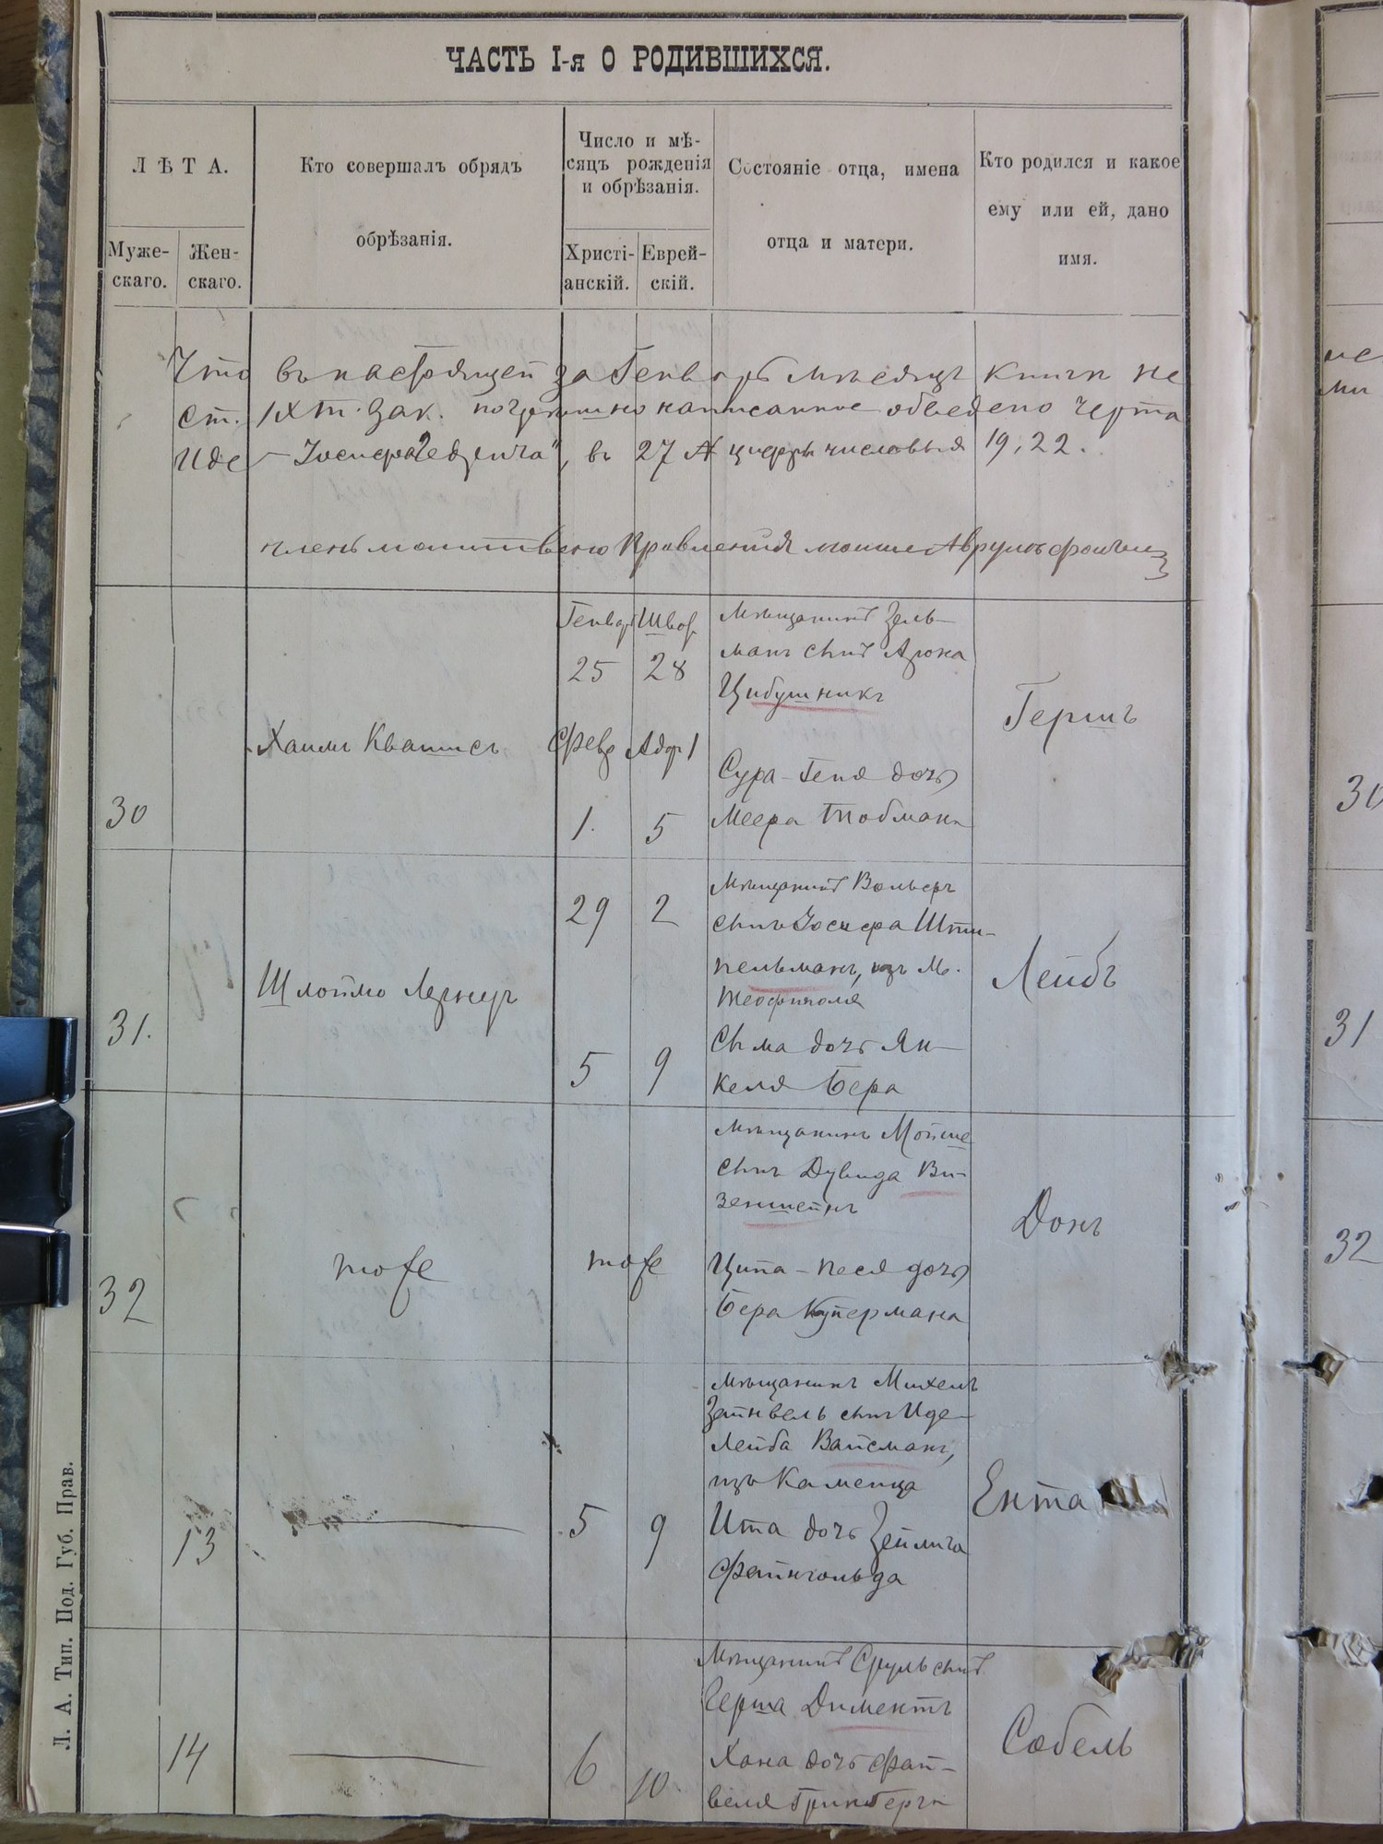 ЧАСТЬ I-я О РОДИВШИХСЯ.
Л Ѣ Т А.
Муже-
скаго.
Жен-
скаго.
Кто совершалъ обрядъ
обрѣзанія.
Число и мѣ-
сяцъ рожденія
и обрѣзанія.
Христі-
анскій.
Еврей-
скій.
Состояніе отца, имена
отца и матери.
Кто родился и какое
ему или ей, дано
имя.
Что въ настоящей за Генварь мѣсяцъ книги не
ст. IX т. Зак. погрешно написанное обведено черта
Иде- Іосифа въ 27 № цифры числовыя 19, 22.
членъ молитвенно Правленія Мошко Аврумъ
30
Хаимъ Квашисъ
Генвар Швот
25 28
Февр Адар 1
1. 5
Мѣщанинъ Зель-
манъ сынъ Арона
Цибушникъ
Сура-Геня дочь
Меера Товмана
Гершъ
30
31.
Шлоймо Лернеръ
29 2
5 9
Мѣщанинъ Вольфъ
сынъ Іосифа Шти-
пельманъ, изъ М.
Теофиполя
Сыма дочь Ян-
келя Бера
Лейбъ
31
32
тоже
тоже
Мѣщанинъ Мойше
сынъ Дувида Ви-
зенштейнъ
Ципа-Песя дочь
Бера Купермана
Донъ
32
13
5 9
Мѣщанинъ Михель
Зайнвель сынъ Иде-
Лейба Вайсманъ,
изъ Каменца
Ита дочь Зейлига
Файнгольда
Ента
14
6 10
Мѣщанинъ Сруль сынъ
Герша Диментъ
Хана дочь Фай-
веля Гринберга
Собель
Л. А. Тип. Под. Губ. Прав.